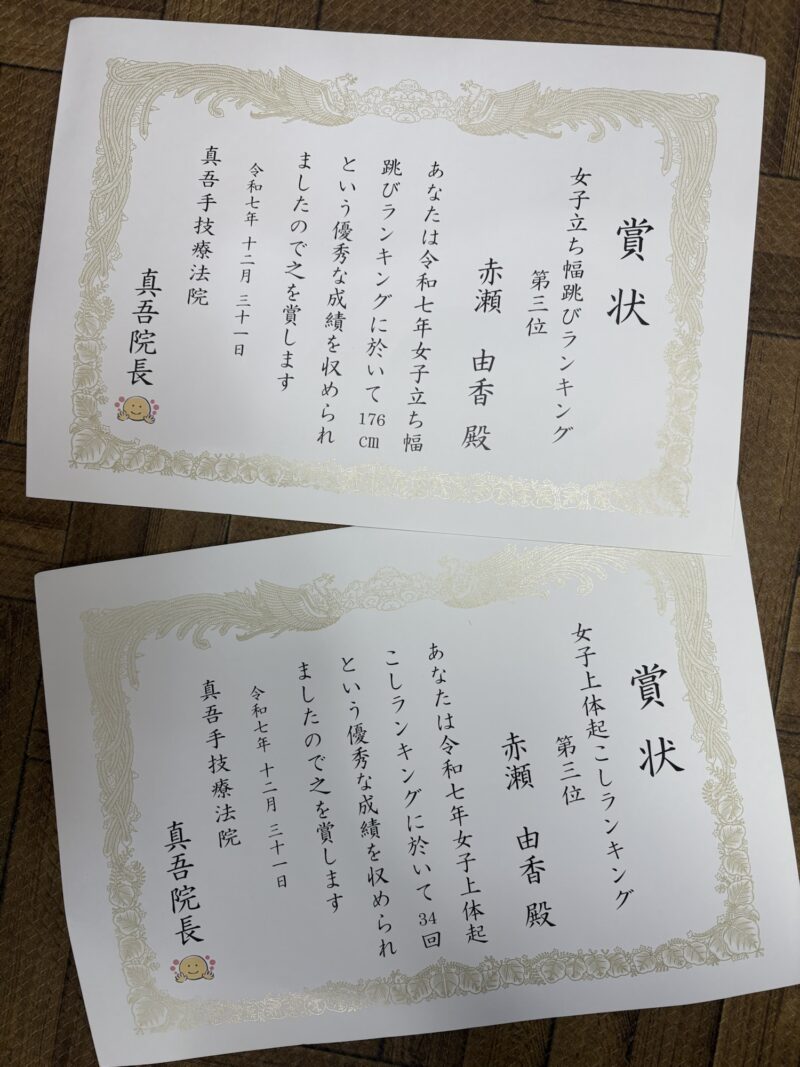 賞状
女子立ち幅跳びランキング
第三位
赤瀬 由香 殿
あなたは令和七年女子立ち幅
跳びランキングに於いて176cm
という優秀な成績を収められ
ましたので之を賞します
令和七年 十二月 三十一日
真吾手技療法院
真吾院長
賞状
女子上体起こしランキング
第三位
赤瀬 由香 殿
あなたは令和七年女子上体起
こしランキングに於いて34回
という優秀な成績を収められ
ましたので之を賞します
令和七年 十二月 三十一日
真吾手技療法院
真吾院長